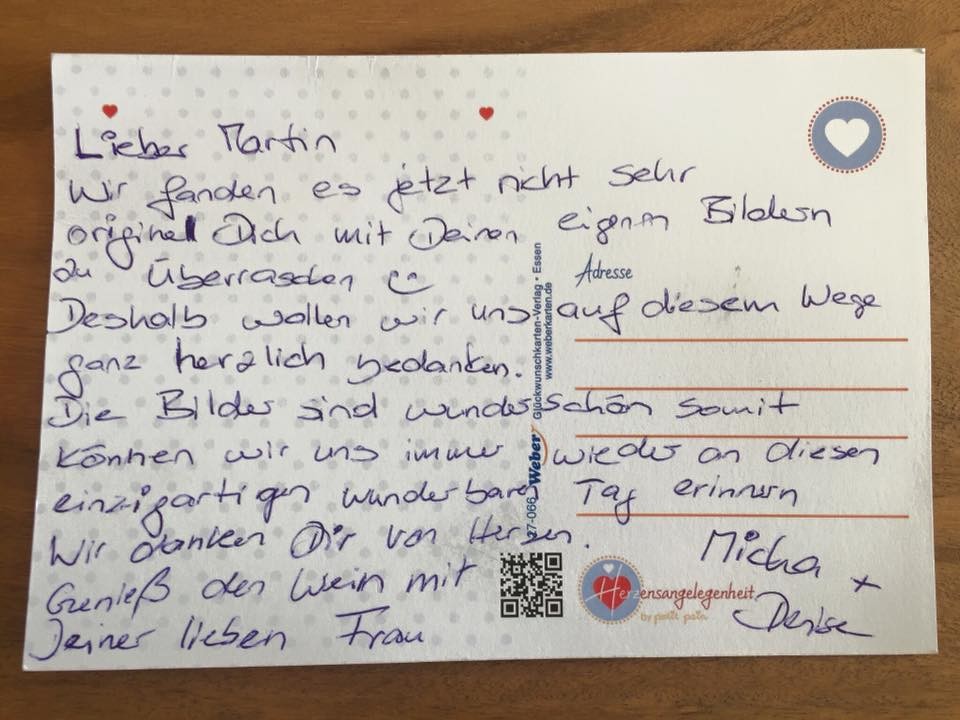 Lieber Martin
Wir fanden es jetzt nicht sehr
original Dich mit Deinen eigenen Bildern
zu Überraschen
Adresse
Deshalb wollen wir uns auf diesem Wege
ganz herzlich bedanken.
Die Bilder sind wunderschön somit
können wir uns immer wieder an diesen
einzigartigen wunderbaren Tag erinnern
Wir danken Dir von Herzen.
Genieß den Wein mit
Deiner lieben Frau
Micha +
Denise
27-066 Weber Glückwunschkarten-Verlag • Essen
www.weberkarten.de
Herzensangelegenheit